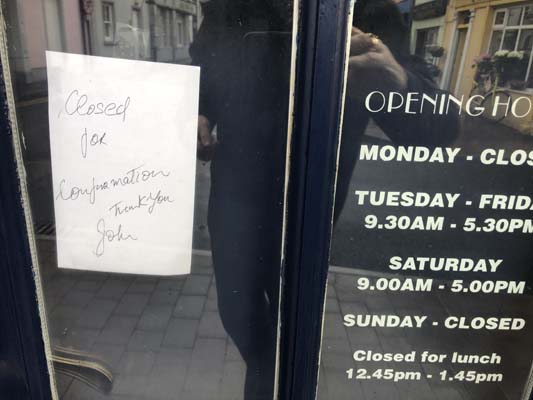 Closed
for
Confirmation
Thank You
John
OPENING HO
MONDAY - CLOS
TUESDAY - FRIDA
9.30AM - 5.30PM
SATURDAY
9.00AM - 5.00PM
SUNDAY - CLOSED
Closed for lunch
12.45pm - 1.45pm